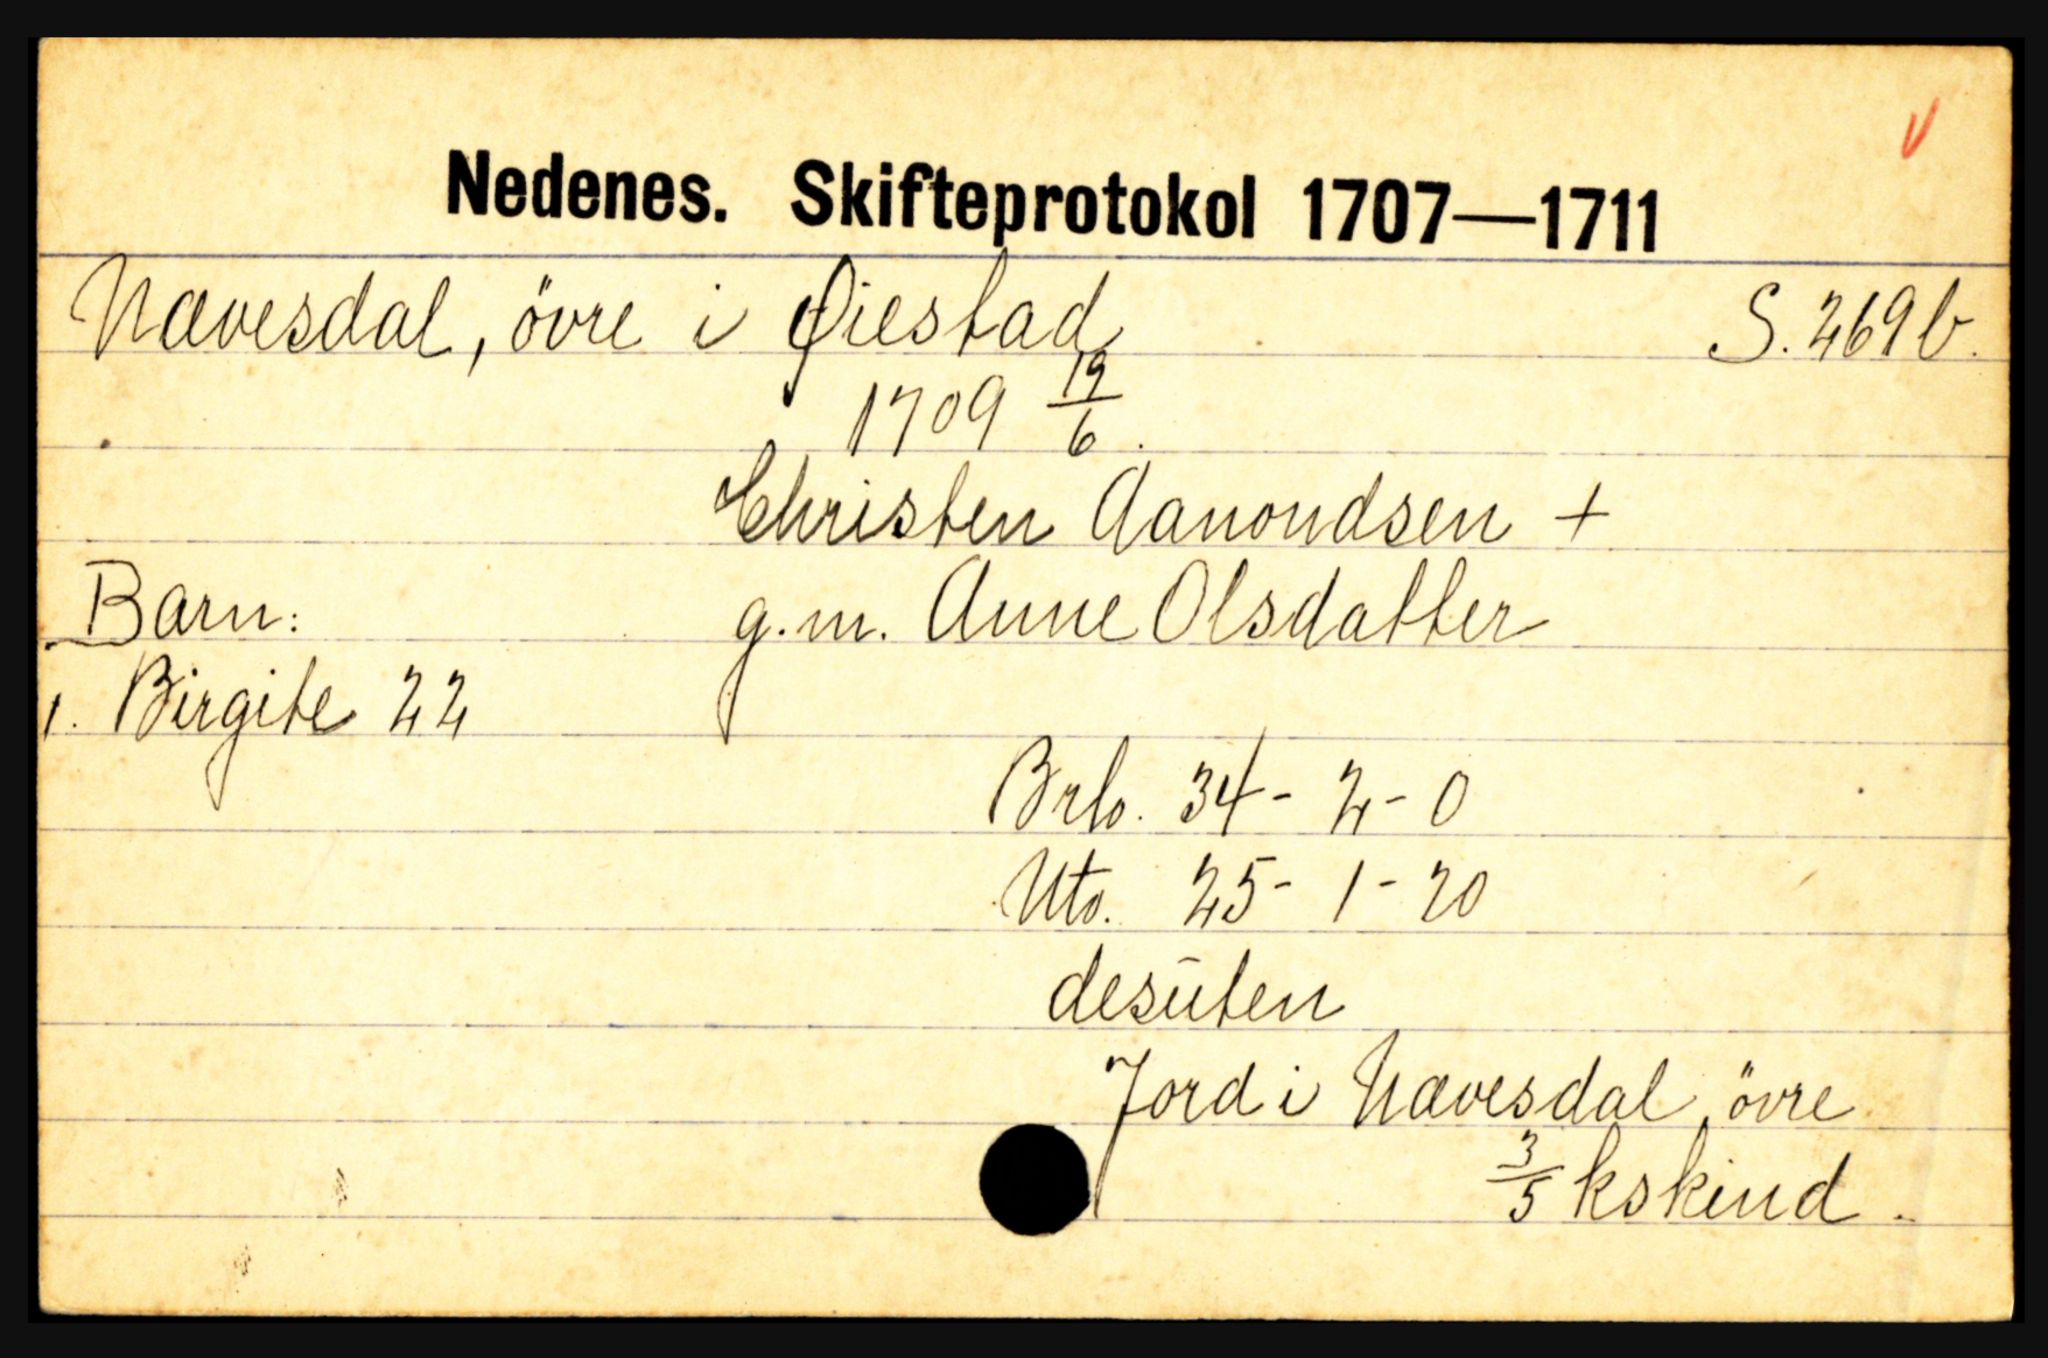 Nedenes. Skifteprotokol 1707—1711
Nævesdal, övre i Øiestad S. 269 b.
1709 19/6.
Christen Aanondsen +
Barn: g.m. Anne Olsdatter
1. Birgite 22
Brb. 34 - 2 - 0
Uto. 25 - 1 - 20
desūten
Jord i Nævesdal, övre
3/5 kskind.